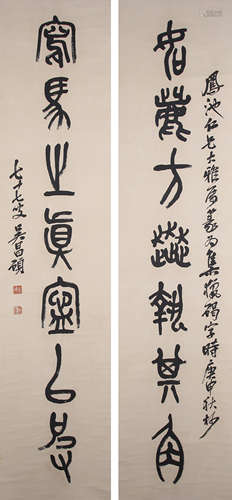 鳳池仁兄大雅屬篆為集獵碣字時庚申秋杪
如方執其角
寫馬之真以
七十七叟吳昌碩